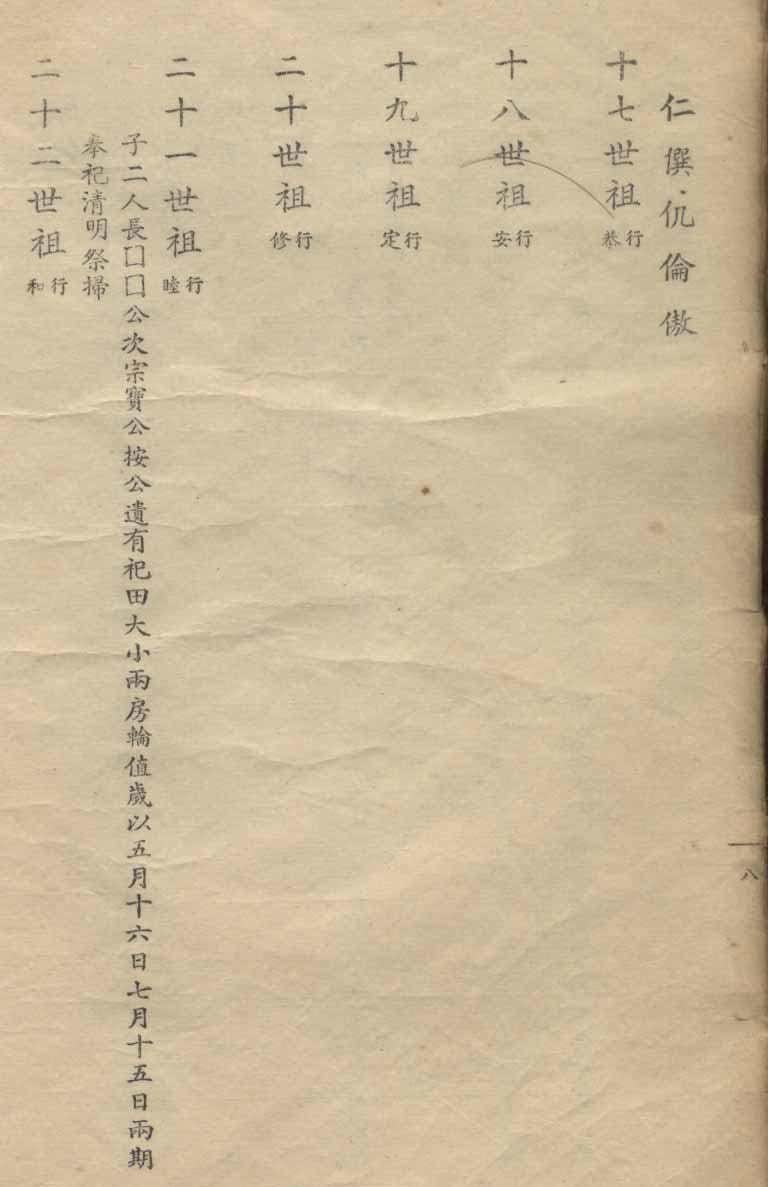 八
仁僎仉倫傲
十七世祖行恭
十八世祖行安
十九世祖行定
二十世祖行修
二十一世祖行睦
子二人長□□公次宗寶公按公遺有祀田大小兩房輪值歲以五月十六日七月十五日兩期
奉祀清明祭掃
二十二世祖行和